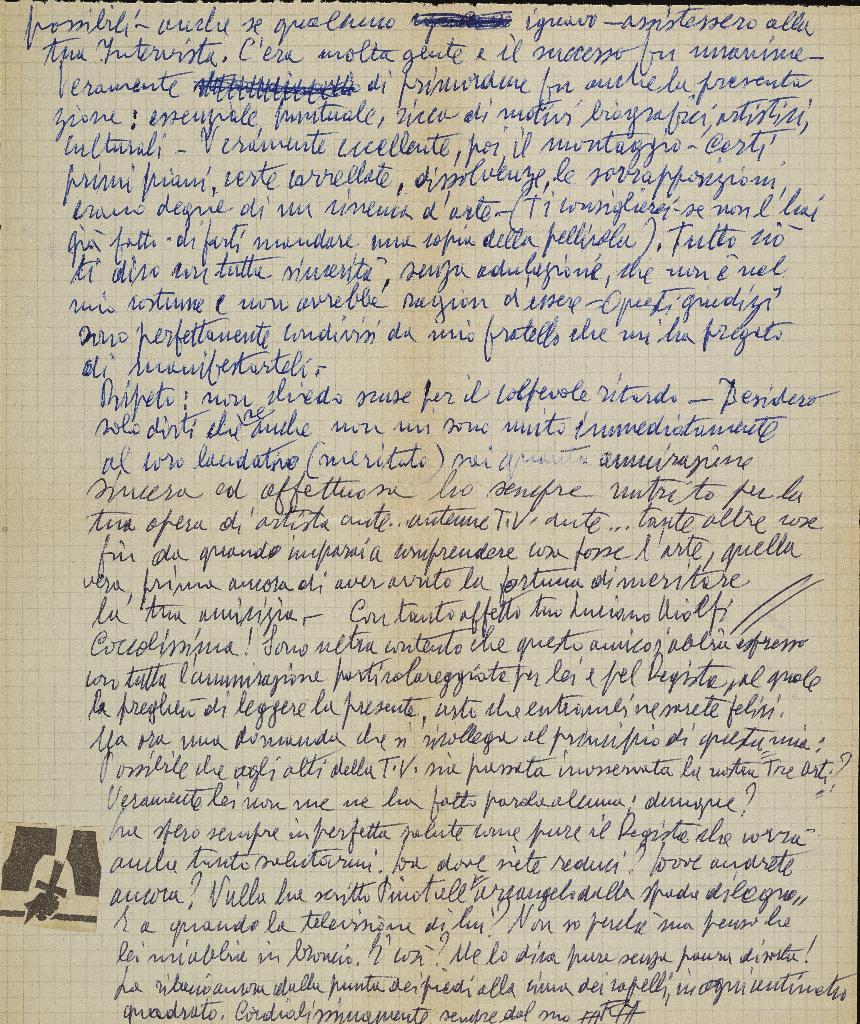 possibili - anche se qualcuno ignavo - assistessero alla
tua Intervista. C'era molta gente e il successo fu unanime -
Veramente di primordine fu anche la presenta
zione: essenziale, puntuale, ricca di motivi biografici, artistici,
culturali - Veramente eccellente, poi, il montaggio - Certi
primi piani, certe carrellate, dissolvenze, le sovrapposizioni,
erano degne di un cinema d'arte - (Ti consiglierei - se non l'hai
già fatto - di farti mandare una copia della pellicola). Tutto ciò
ti dico con tutta sincerità, senza adulazione, che non è nel
mio costume e non avrebbe ragion d'essere - Questi giudizi
sono perfettamente condivisi da mio fratello che mi ha pregato
di manifestarteli.
Ripeto: non chiedo scuse per il colpevole ritardo - Desidero
solo dirti che se anche non mi sono unito immediatamente
al coro laudativo (meritato) sai quanta ammirazione
sincera ed affettuosa ho sempre nutrito per la
tua opera di artista ante.. antenne T.V. ante... tante altre cose
fin da quando imparai a comprendere cosa fosse l'arte, quella
vera, prima ancora di aver avuto la fortuna di meritare
la tua amicizia. - Con tanto affetto tuo Luciano
Coccolissima! Sono ultra contento che questo amico abbia espresso
con tutta l'ammirazione particolareggiata per lei e pel Regista, al quale
la pregherei di leggere la presente, certo che entrambi ne sarete felici.
Ma ora una domanda che si ricollega al principio di questa mia:
Possibile che agli alti della T.V. sia passata inosservata la nostra "Tre arti"?
Veramente lei non me ne ha fatto parola alcuna: dunque?
La spero sempre in perfetta salute come pure il Regista che vorrà
anche tanto salutarmi. Da dove siete reduci? Dove andrete
ancora? Nulla ha scritto Pinot all'"arcangelo dalla spada di legno"
E a quando la televisione di lui? Non so perché ma penso che
lei mi abbia in broncio. È così? Me lo dica pure senza paura di sorta!
La ribacio ancora dalla punta dei piedi alla cima dei capelli, in ogni centimetro
quadrato. Cordialissimamente sempre dal suo